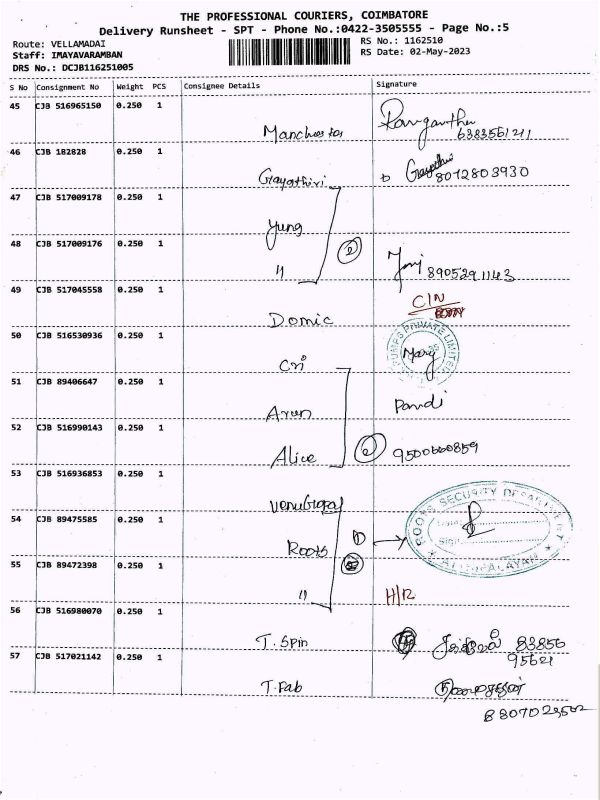 THE PROFESSIONAL COURIERS, COIMBATORE
Delivery Runsheet - SPT - Phone No.:0422-3505555 - Page No.:5
Route: VELLAMADAI
RS No.: 1162510
Staff: IMAYAVARAMBAN
RS Date: 02-May-2023
DRS No.: DCJB116251005
S No Consignment No Weight PCS Consignee Details Signature
45 CJB 516965150 0.250 1
Manchester 6383561211
46 CJB 182828 0.250 1
Gayathiri Gayathri 8012803930
47 CJB 517009178 0.250 1
Yung
48 CJB 517009176 0.250 1
11 2 8905291143
49 CJB 517045558 0.250 1
C/N
Domic
50 CJB 516530936 0.250 1
PUMPS PRIVATE LIMITED
Mary
Cri
51 CJB 89406647 0.250 1
Arun Pandi
52 CJB 516990143 0.250 1
Alice
53 CJB 516936853 0.250 1
Venugopal
54 CJB 89475585 0.250 1
ROOTS SECURITY DEPARTMENT
Date
Sign
Roots
55 CJB 89472398 0.250 1
11 H/R
56 CJB 516980070 0.250 1
T. Spin 83856
95621
57 CJB 517021142 0.250 1
T. Fab